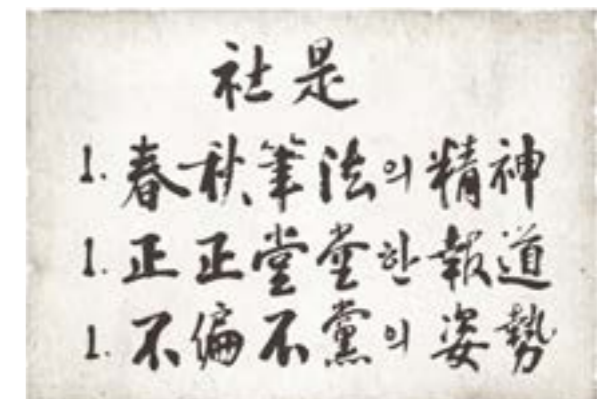 社是
1. 春秋筆法의 精神
1. 正正堂堂한 報道
1. 不偏不黨의 姿勢